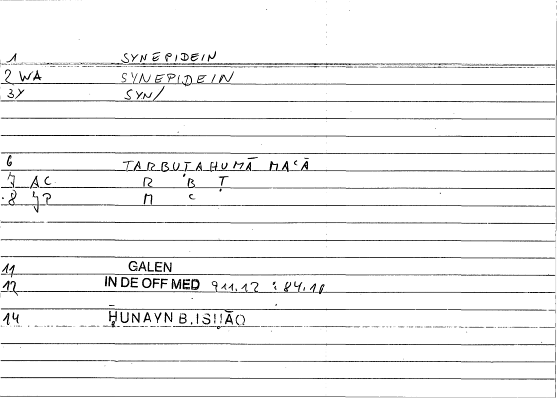 1 SYNEPIDEIN
2 WA SYNEPIDEIN
3Y SYN/
6 TARBUṬAHUMĀ MAʿĀ
7 AC R B Ṭ
8 JP M ʿ
11 GALEN
12 IN DE OFF MED 911.12 : 84.10
14 ḤUNAYN B.ISḤĀQ